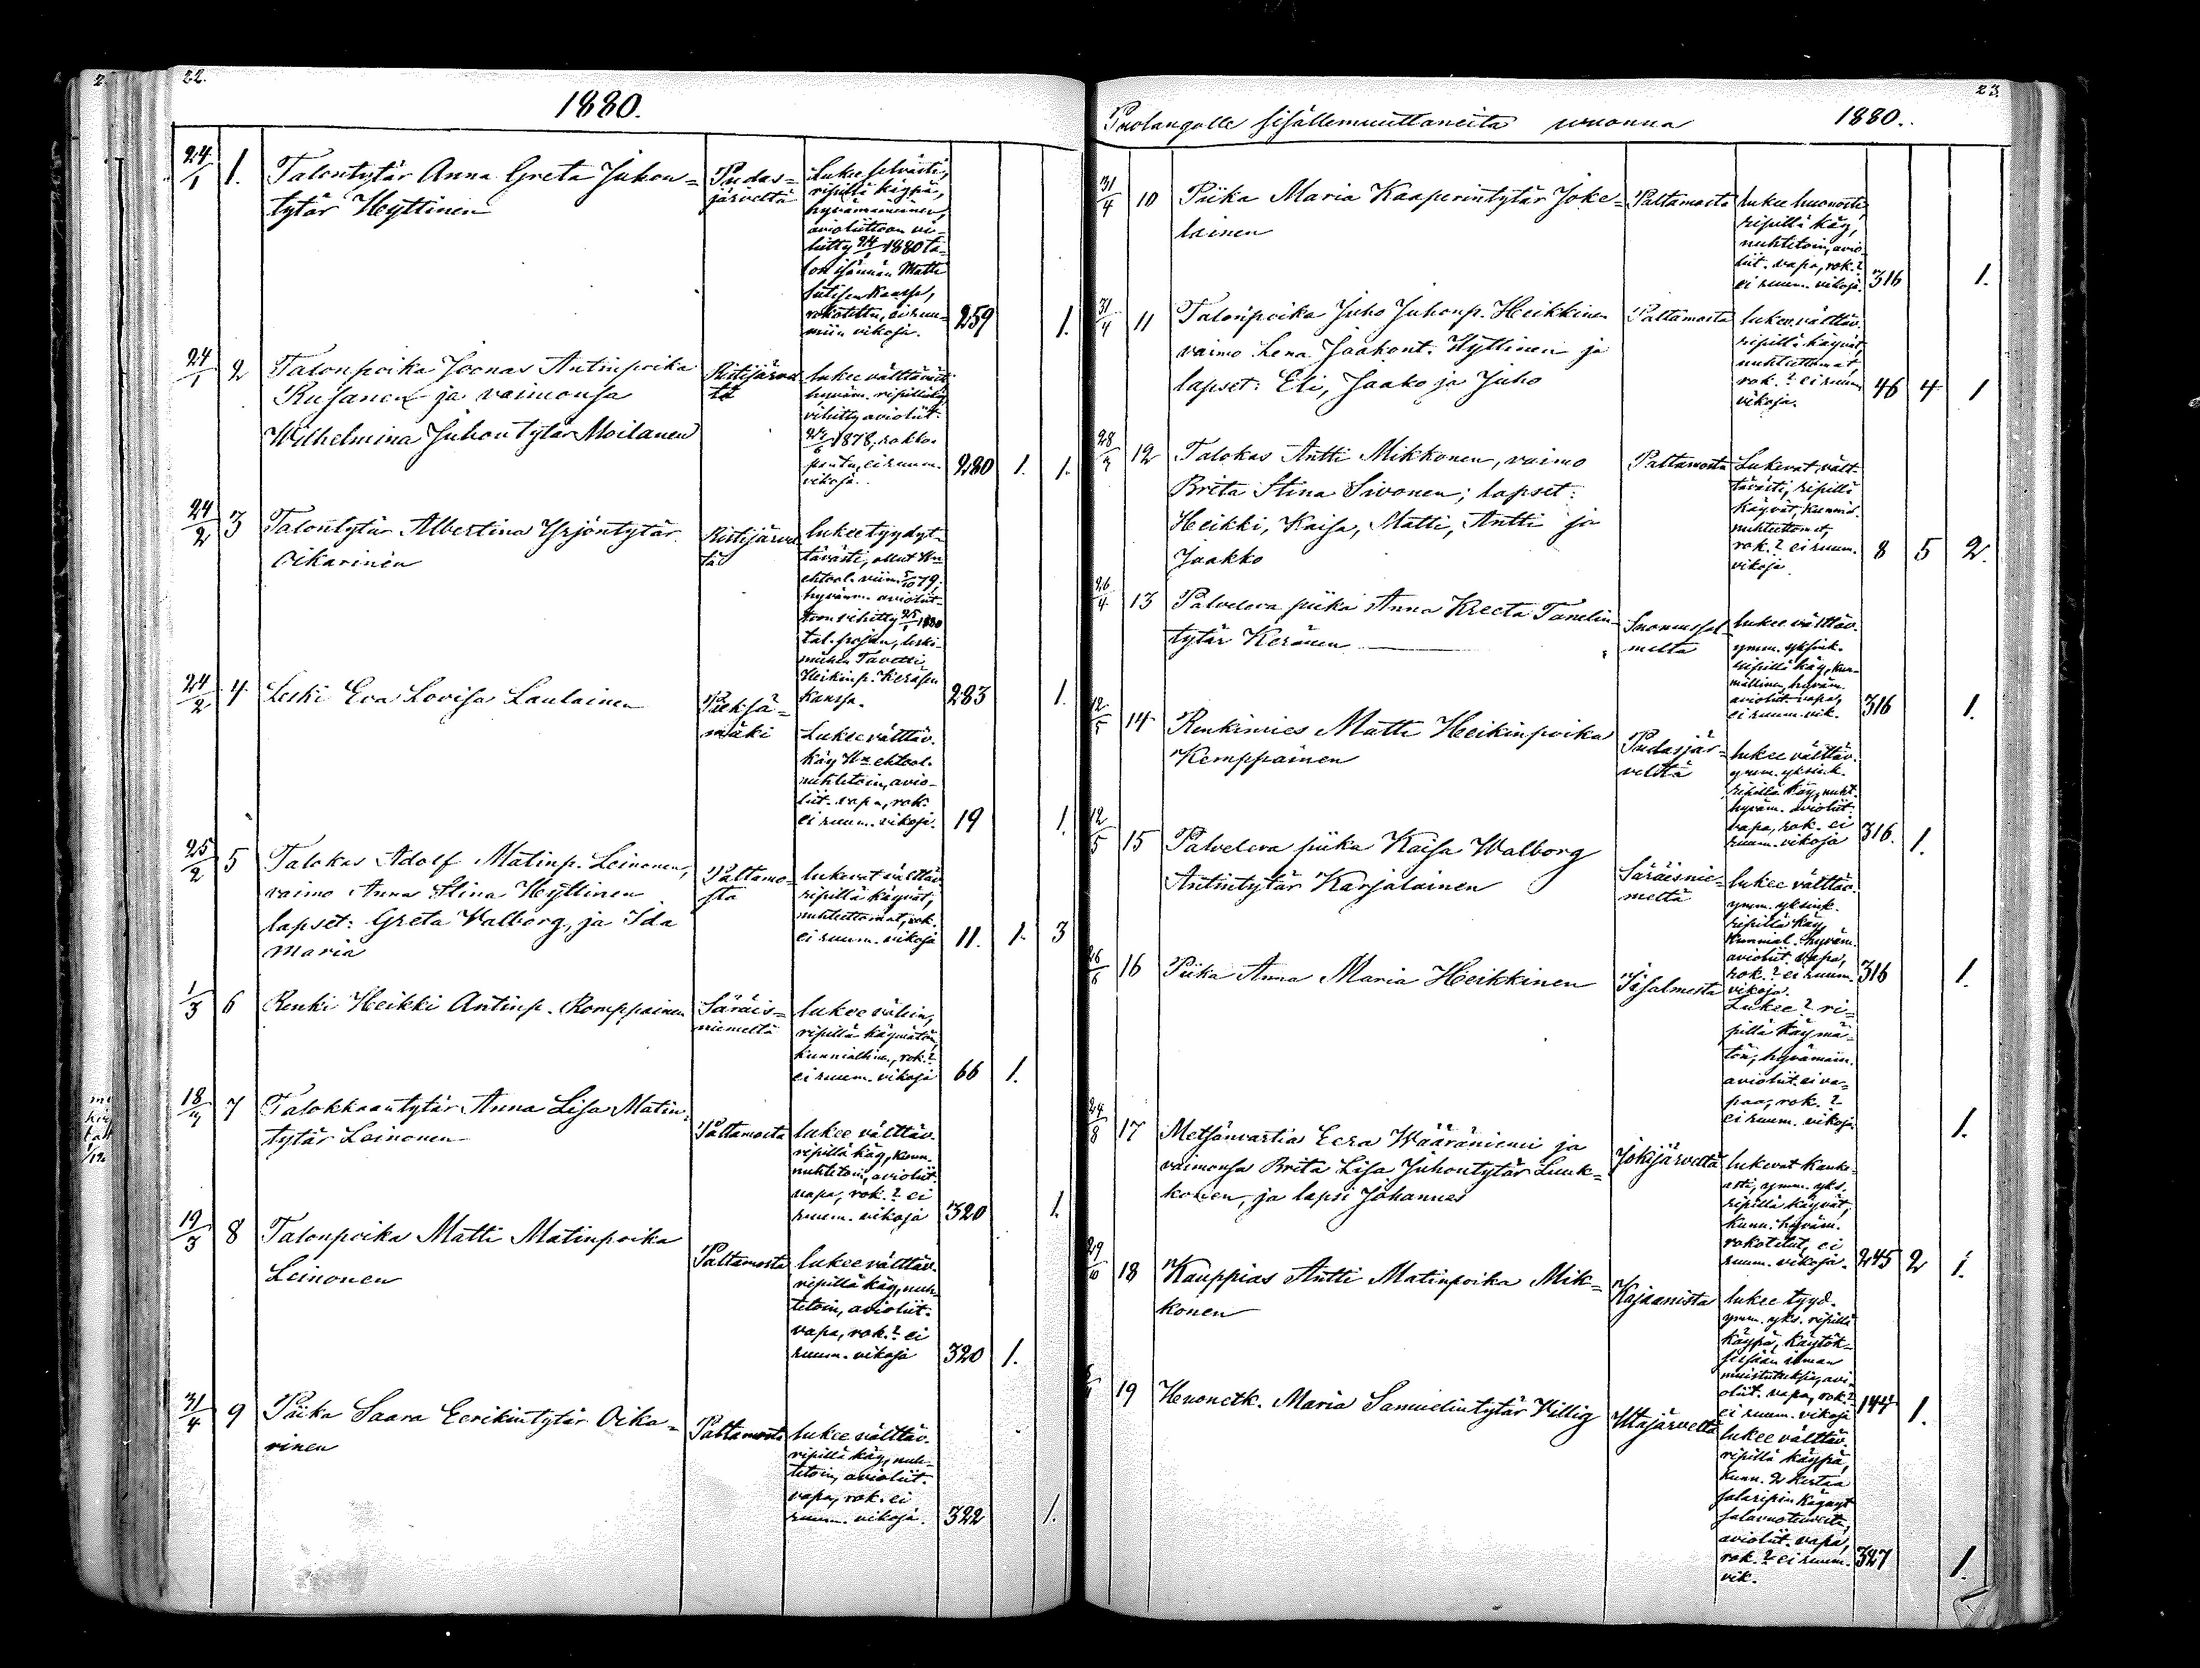 22.
1880.
24/1 1. Talontytär Anna Greta Juhon=
tytär Hyttinen
Pudas=
järveltä
Lukee selvästi,
ripillä käypä,
hyvämaininen,
avioliittoon vi-
hitty 24/1 1880 ta-
lon isännän Matti
kanssa,
rokotettu, ei ruu-
miin vikoja. 259 1.
24/1 2 Talonpoika Joonas Antinpoika
Rusanen ja vaimonsa
Wilhelmina Juhontytär Moilanen
Ristijärvel
tä
lukee välttäväst.
hyväm. ripillä käy
vihitty avioliit.
1878, rokko-
pantu, ei ruum.
vikoja. 280 1. 1.
24/2 3 Talontytär Albertina Yrjöntytär
Oikarinen
Ristijärvel
tä
lukee tyydyt-
tävästi, ollut
ehtool. viim. 5/10 79,
hyväm. avioliit-
toon vihitty 1880
tal. pojan, leski-
miehen Taveetti
Heikinp. Keräsen
kanssa. 283 1.
24/2 4 Leski Eva Lovisa Laulainen
Pieksä=
mäki
Lukee välttäv.
käy H:n ehtool.
nuhtetoin, avio-
liit. vapa, rok.
ei ruum. vikoja. 19 1.
25/2 5 Talokas Adolf Matinp. Leinonen,
vaimo Anna Stina Hyttinen
lapset: Greta Walborg, ja Ida
Maria
Paltamo-
sta
lukevat välttäv
ripillä käyvät,
nuhteettomat, rok.
ei ruum. vikoja 11. 1. 3
1/3 6 Renki Heikki Antinp. Komppainen
Säräis=
niemeltä
lukee vähin,
ripillä käymätön
kunniallinen, rok.?
ei ruum. vikoja 66 1.
18/3 7 Talokkaantytär Anna Lisa Matin=
tytär Leinonen
Paltamosta
lukee välttäv.
ripillä käy, kunn.
nuhtetoin, avioliit.
vapa, rok.? ei
ruum. vikoja 320 1.
19/3 8 Talonpoika Matti Matinpoika
Leinonen
Paltamosta
lukee välttäv.
ripillä käy, nuh-
tetoin, avioliit.
vapa, rok.? ei
ruum. vikoja 320 1.
31/4 9 Piika Saara Eerikintytär Oika=
rinen
Paltamosta
lukee välttäv.
ripillä käy, nuh-
tetoin, avioliit.
vapa, rok. ei
ruum. vikoja. 322 1.
23.
Puolangalle sisällemuuttaneita wuonna 1880.
31/4 10 Piika Maria Kaaperintytär Joke=
lainen
Paltamosta
lukee huonosti,
ripillä käy,
nuhtetoin, avio-
liit. vapa, rok.?
ei ruum. vikoja. 316 1.
31/4 11 Talonpoika Juho Juhonp. Heikkinen
vaimo Lena Jaakont. Hyttinen ja
lapset: Eli, Jaako ja Juho
Paltamosta
lukev. välttäv.
ripillä käyvät,
nuhteettomat,
rok.? ei ruum.
vikoja. 46 4 1
28/3 12 Talokas Antti Mikkonen, vaimo
Brita Stina Sivonen; lapset:
Heikki, Kaisa, Matti, Antti ja
Jaakko
Paltamosta
Lukevat vält-
tävästi, ripillä
käyvät,
nuhteettomat,
rok.? ei ruum.
vikoja 8 5 2.
26/4 13 Palveleva piika Anna Kreeta Tanelin-
tytär Keränen
Suomussal-
melta
lukee välttäv.
ymm. yksink.
ripillä käy, kun-
niallinen, hyväm.
avioliit. vapa,
ei ruum. vik. 316 1.
12/5 14 Renkimies Matti Heikinpoika
Kemppainen
Pudasjär=
veltä
lukee välttäv.
ymm. yksink.
ripillä käy, nuht.
hyväm. avioliit.
vapa, rok. ei
ruum. vikoja 316. 1.
12/5 15 Palveleva piika Kaisa Walborg
Antintytär Karjalainen
Säräisnie-
meltä
lukee välttäv.
ymm. yksink.
ripillä käy
kunnial. hyväm.
avioliit. vapa,
rok.? ei ruum.
vikoja. 316 1.
26/6 16 Piika Anna Maria Heikkinen
Iisalmesta
Lukee? ri-
pillä käymä-
tön, hyvämain.
avioliit. ei va-
paa, rok.?
ei ruum. vikoja 1.
24/8 17 Metsänvartia Eera Wääräniemi ja
vaimonsa Brita Lisa Juhontytär Luuk-
konen, ja lapsi Johannes
Jokijärveltä
lukevat kanke-
asti, ymm. yks.
ripillä käyvät,
kunn. hyväm.
rokotetut, ei
ruum. vikoja. 245 2 1.
29/10 18 Kauppias Antti Matinpoika Mik-
konen
Kajaanista
lukee tyyd.
ymm. yks. ripillä
käypä, käytök-
sessään ilman
muistutuksia, avi-
oliit. vapa, rok.?
ei ruum. vikoja 144 1.
19 Huonetk. Maria Samuelintytär Villig
Utajärveltä
lukee välttäv.
ripillä käypä,
kunn. 2 kertaa
salaripin käynyt
salavuoteudesta,
avioliit. vapa,
rok.? ei ruum.
vik. 327 1.